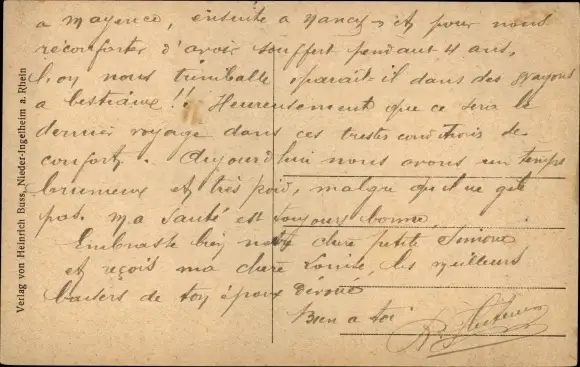 a Mayence, ensuite a Nancy, et pour nous
réconforter d'avoir souffert pendant 4 ans,
l'on nous trimballe parait-il dans des wagons
a bestiaux!! Heureusement que ce sera le
dernier voyage dans ces tristes conditions de
confort. Aujourd'hui nous avons un temps
brumeux et très froid, malgré qu'il ne gèle
pas. Ma santé est toujours bonne,
Embrasse bien notre chère petite Simone
et reçois ma chère Louise, les meilleurs
baisers de ton époux dévoué
Bien a toi
Verlag von Heinrich Buss, Nieder-Ingelheim a. Rhein